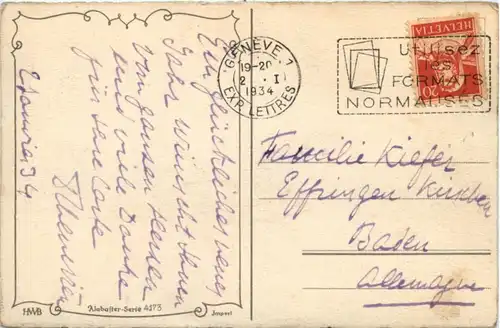 Ein glückliches neues
Jahr wünscht Ihnen
Von ganzen Herzen
und viele Danke
für Ihre Carte
2 Janvier 34
GENÈVE 1
19-20
2. I
1934
EXP. LETTRES
HELVETIA
20
Utilisez
les
FORMATS
NORMALISÉS
Familie Kiefer
Effringen Kirchen
Baden
Allemagne
HWB
Alabaster-Serie 4173
Import